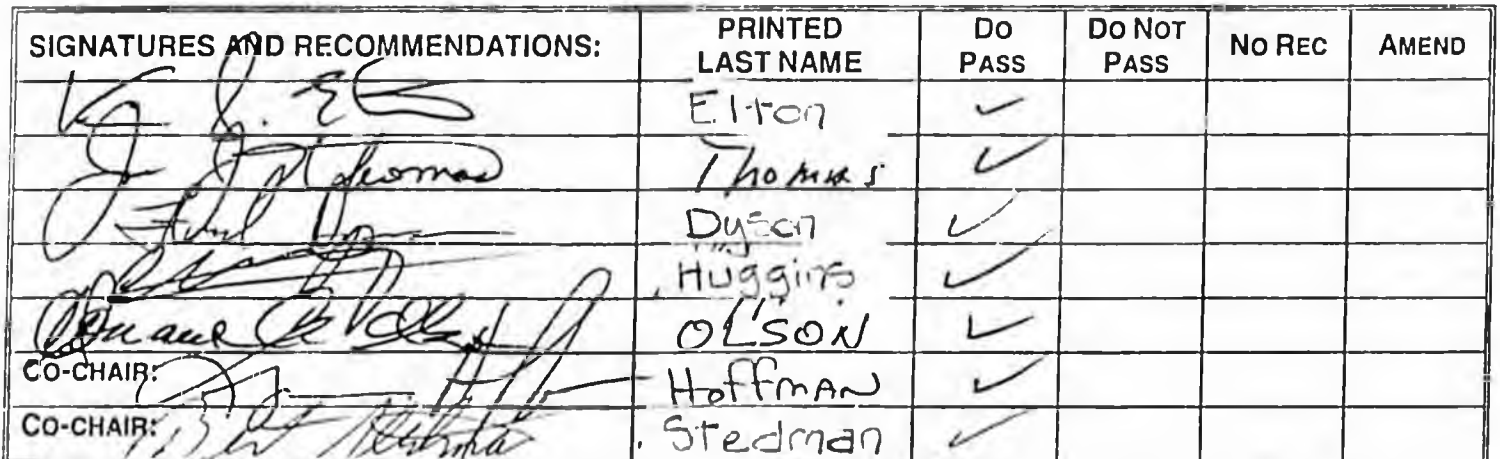 SIGNATURES AND RECOMMENDATIONS: PRINTED LAST NAME DO PASS DO NOT PASS NO REC AMEND
Elton ✓
Thomas Thomas ✓
Dyson ✓
Huggins ✓
OLSON ✓
CO-CHAIR: HoffmAN ✓
CO-CHAIR: Bert Stedman Stedman ✓